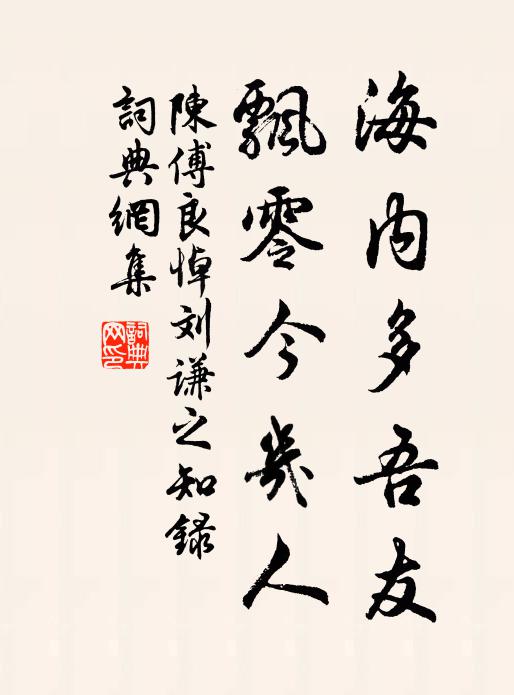 海内多吾友
飄零今幾人
陳傅良悼刘謙之知録
詞典網集
詞典網印